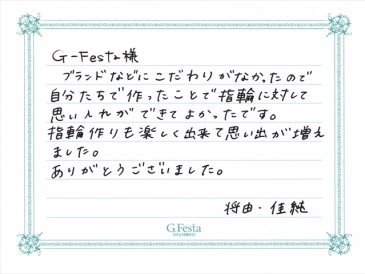 G-Festa様
ブランドなどにこだわりがなかったので
自分たちで作ったことで指輪に対して
思い入れができてよかったです。
指輪作りも楽しく出来て思い出が増え
ました。
ありがとうございました。
将由・佳純
G.Festa